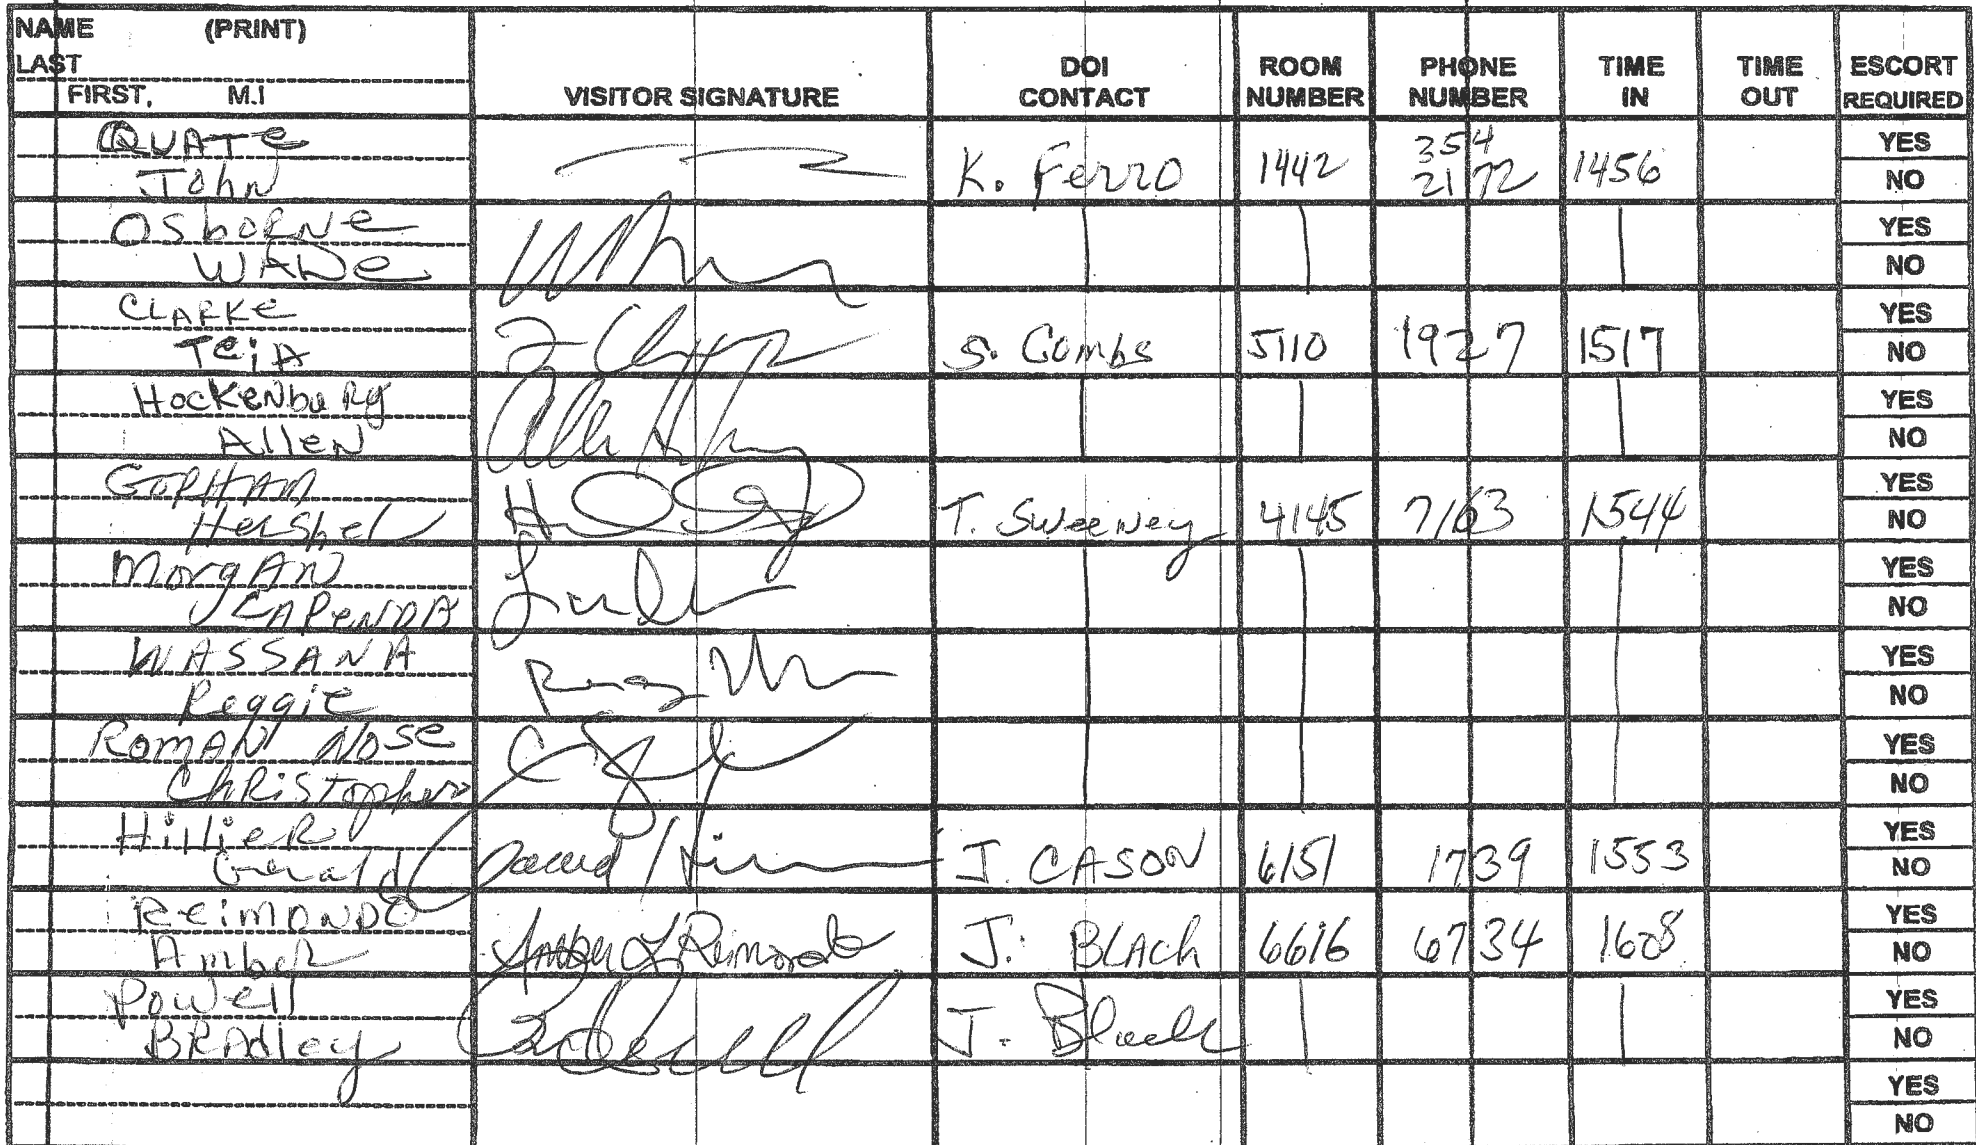 NAME (PRINT)
LAST
FIRST, M.I
VISITOR SIGNATURE
DOI CONTACT
ROOM NUMBER
PHONE NUMBER
TIME IN
TIME OUT
ESCORT REQUIRED
QUATE
John
K. Ferro 1442 354 2172 1456 YES NO
OSBORNE
WADE
YES NO
CLARKE
TeiA
S. Combs 5110 1927 1517 YES NO
HockeNbuRy
AlleN
YES NO
GORHAM
Hershel
T. Sweeney 4145 7163 1544 YES NO
MorgAN
LAPENDA
YES NO
WASSANA
Reggie
YES NO
ROMAN NOSE
ChRiStopher
YES NO
HillieR
Gerald
J. CASON 6151 1739 1553 YES NO
ReimONDO
AmbeR
Amber L Reimondo J. BLACk 6616 6734 1608 YES NO
Powell
BRAdley
J. Black YES NO
YES NO